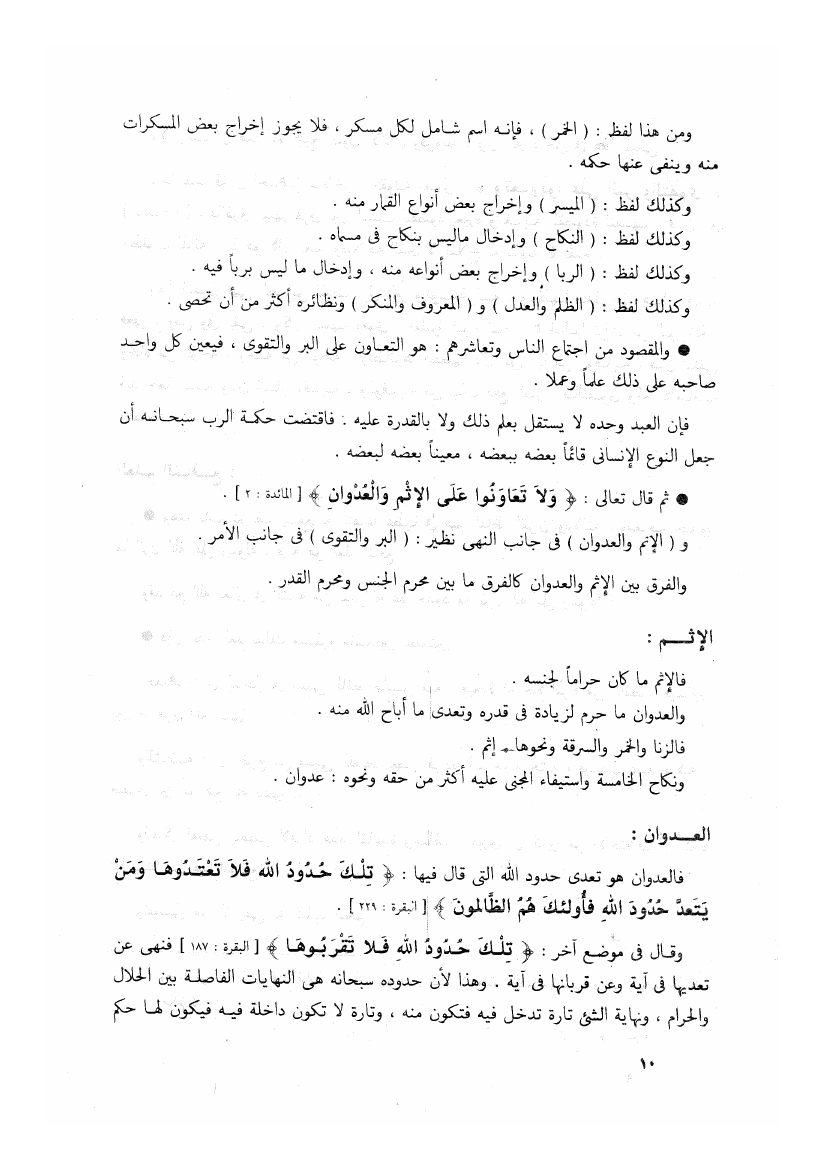 ومن هذا لفظ : ( الخمر ) ، فإنه اسم شامل لكل مسكر ، فلا يجوز إخراج بعض المسكرات
منه وينفى عنها حكمه .
وكذلك لفظ : ( الميسر ) وإخراج بعض أنواع القمار منه .
وكذلك لفظ : ( النكاح ) وإدخال ماليس بنكاح فى مسماه .
وكذلك لفظ : ( الربا ) وإخراج بعض أنواعه منه ، وإدخال ما ليس برباً فيه .
وكذلك لفظ : ( الظلم والعدل ) و ( المعروف والمنكر ) ونظائره أكثر من أن تحصى .
● والمقصود من اجتماع الناس وتعاشرهم : هو التعاون على البر والتقوى ، فيعين كل واحد
صاحبه على ذلك علماً وعملا .
فإن العبد وحده لا يستقل بعلم ذلك ولا بالقدرة عليه . فاقتضت حكمة الرب سبحانه أن
جعل النوع الإنسانى قائماً بعضه ببعضه ، معيناً بعضه لبعضه .
● ثم قال تعالى : ﴿ وَلاَ تَعَاوَنُوا عَلَى الإِثْمِ وَالْعُدْوانِ ﴾ [ المائدة : ٢ ] .
و ( الإثم والعدوان ) فى جانب النهى نظير : ( البر والتقوى ) فى جانب الأمر .
والفرق بين الإثم والعدوان كالفرق ما بين محرم الجنس ومحرم القدر .
الإثـــم :
فالإثم ما كان حراماً لجنسه .
والعدوان ما حرم لزيادة فى قدره وتعدى ما أباح الله منه .
فالزنا والخمر والسرقة ونحوها إثم .
ونكاح الخامسة واستيفاء المجنى عليه أكثر من حقه ونحوه : عدوان .
العــدوان :
فالعدوان هو تعدى حدود الله التى قال فيها : ﴿ تِلْـكَ حُـدُودُ الله فَلاَ تَعْتَـدُوهَـا وَمَنْ
يَتَعدَّ حُدُودَ اللهِ فأُولئكَ هُمُ الظَّالمونَ ﴾ [ البقرة : ٢٢٩ ] .
وقال فى موضع آخر : ﴿ تِلْـكَ حُـدُودُ اللهِ فَـلا تَقْرَبُـوهَـا ﴾ [ البقرة : ١٨٧ ] فنهى عن
تعديها فى آية وعن قربانها فى آية . وهذا لأن حدوده سبحانه هى النهايات الفاصلة بين الحلال
والحرام ، ونهاية الشئ تارة تدخل فيه فتكون منه ، وتارة لا تكون داخلة فيه فيكون لها حكم
١٠